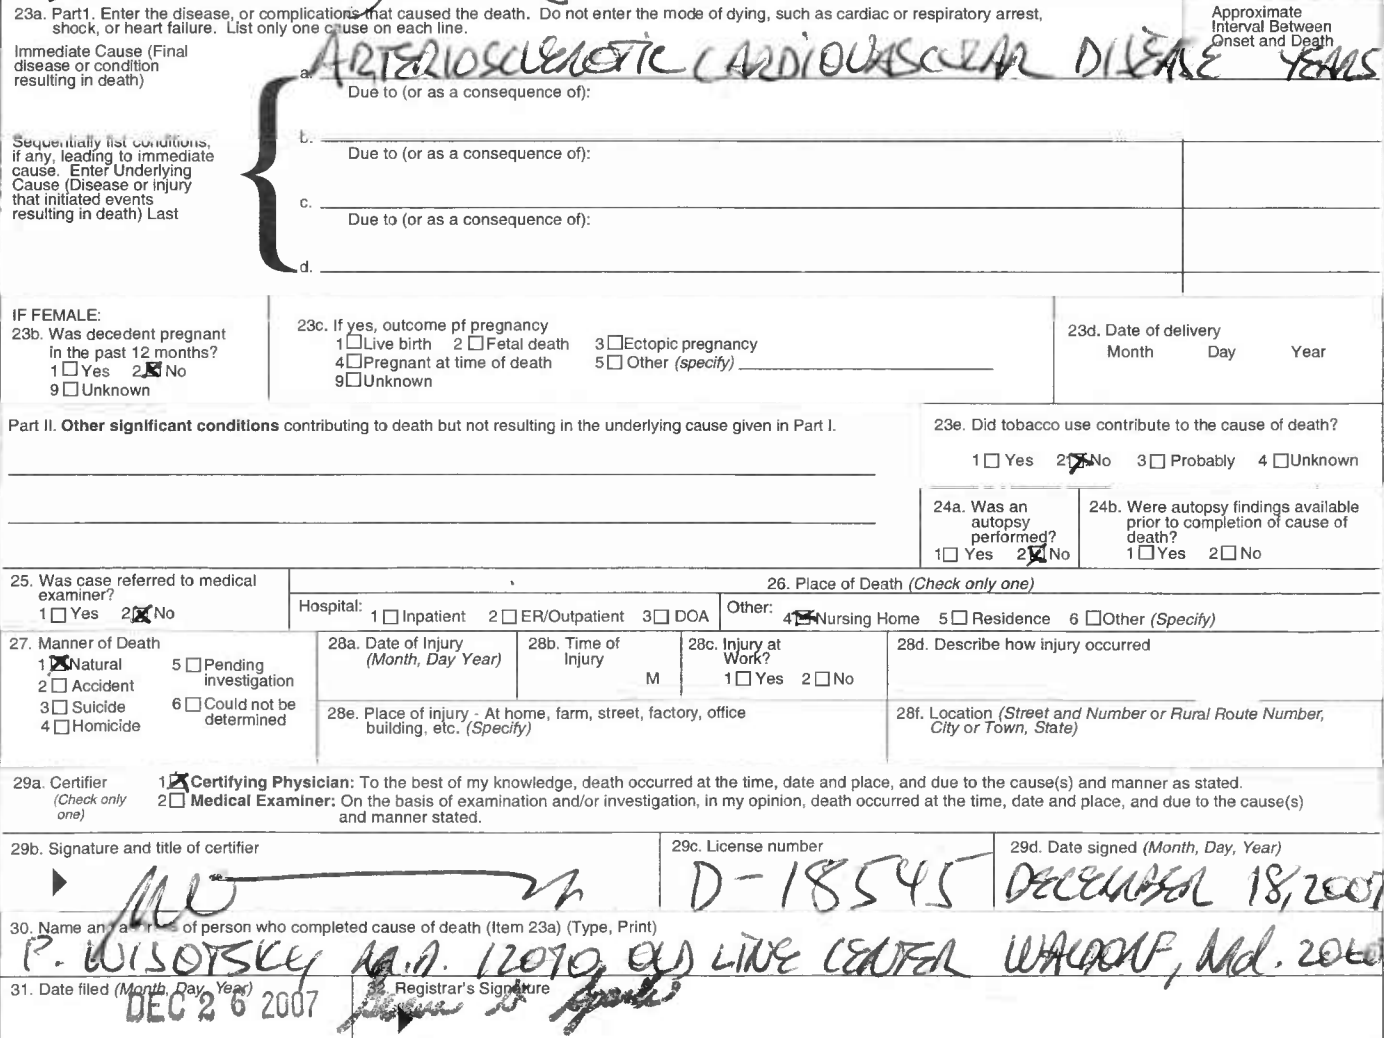 23a. Part1. Enter the disease, or complications that caused the death. Do not enter the mode of dying, such as cardiac or respiratory arrest,
shock, or heart failure. List only one cause on each line.
Approximate
Interval Between
Onset and Death
Immediate Cause (Final
disease or condition
resulting in death)
a. ARTERIOSCLEROTIC CARDIOVASCULAR DISEASE YEARS
Due to (or as a consequence of):
Sequentially list conditions,
if any, leading to immediate
cause. Enter Underlying
Cause (Disease or injury
that initiated events
resulting in death) Last
b.
Due to (or as a consequence of):
c.
Due to (or as a consequence of):
d.
IF FEMALE:
23b. Was decedent pregnant
in the past 12 months?
1 Yes 2 No
9 Unknown
23c. If yes, outcome pf pregnancy
1 Live birth 2 Fetal death 3 Ectopic pregnancy
4 Pregnant at time of death 5 Other (specify)
9 Unknown
23d. Date of delivery
Month Day Year
Part II. Other significant conditions contributing to death but not resulting in the underlying cause given in Part I.
23e. Did tobacco use contribute to the cause of death?
1 Yes 2 No 3 Probably 4 Unknown
24a. Was an
autopsy
performed?
1 Yes 2 No
24b. Were autopsy findings available
prior to completion of cause of
death?
1 Yes 2 No
25. Was case referred to medical
examiner?
1 Yes 2 No
26. Place of Death (Check only one)
Hospital: 1 Inpatient 2 ER/Outpatient 3 DOA
Other: 4 Nursing Home 5 Residence 6 Other (Specify)
27. Manner of Death
1 Natural 5 Pending
investigation
2 Accident
3 Suicide 6 Could not be
determined
4 Homicide
28a. Date of Injury
(Month, Day Year)
28b. Time of
Injury
M
28c. Injury at
Work?
1 Yes 2 No
28d. Describe how injury occurred
28e. Place of injury - At home, farm, street, factory, office
building, etc. (Specify)
28f. Location (Street and Number or Rural Route Number,
City or Town, State)
29a. Certifier
(Check only
one)
1 Certifying Physician: To the best of my knowledge, death occurred at the time, date and place, and due to the cause(s) and manner as stated.
2 Medical Examiner: On the basis of examination and/or investigation, in my opinion, death occurred at the time, date and place, and due to the cause(s)
and manner stated.
29b. Signature and title of certifier
29c. License number
D-18545
29d. Date signed (Month, Day, Year)
DECEMBER 18, 2007
30. Name of person who completed cause of death (Item 23a) (Type, Print)
P. WISOTSKY M.D. 12070, OLD LINE CENTER WALDORF, Md.
31. Date filed (Month, Day, Year)
DEC 26 2007
32. Registrar's Signature